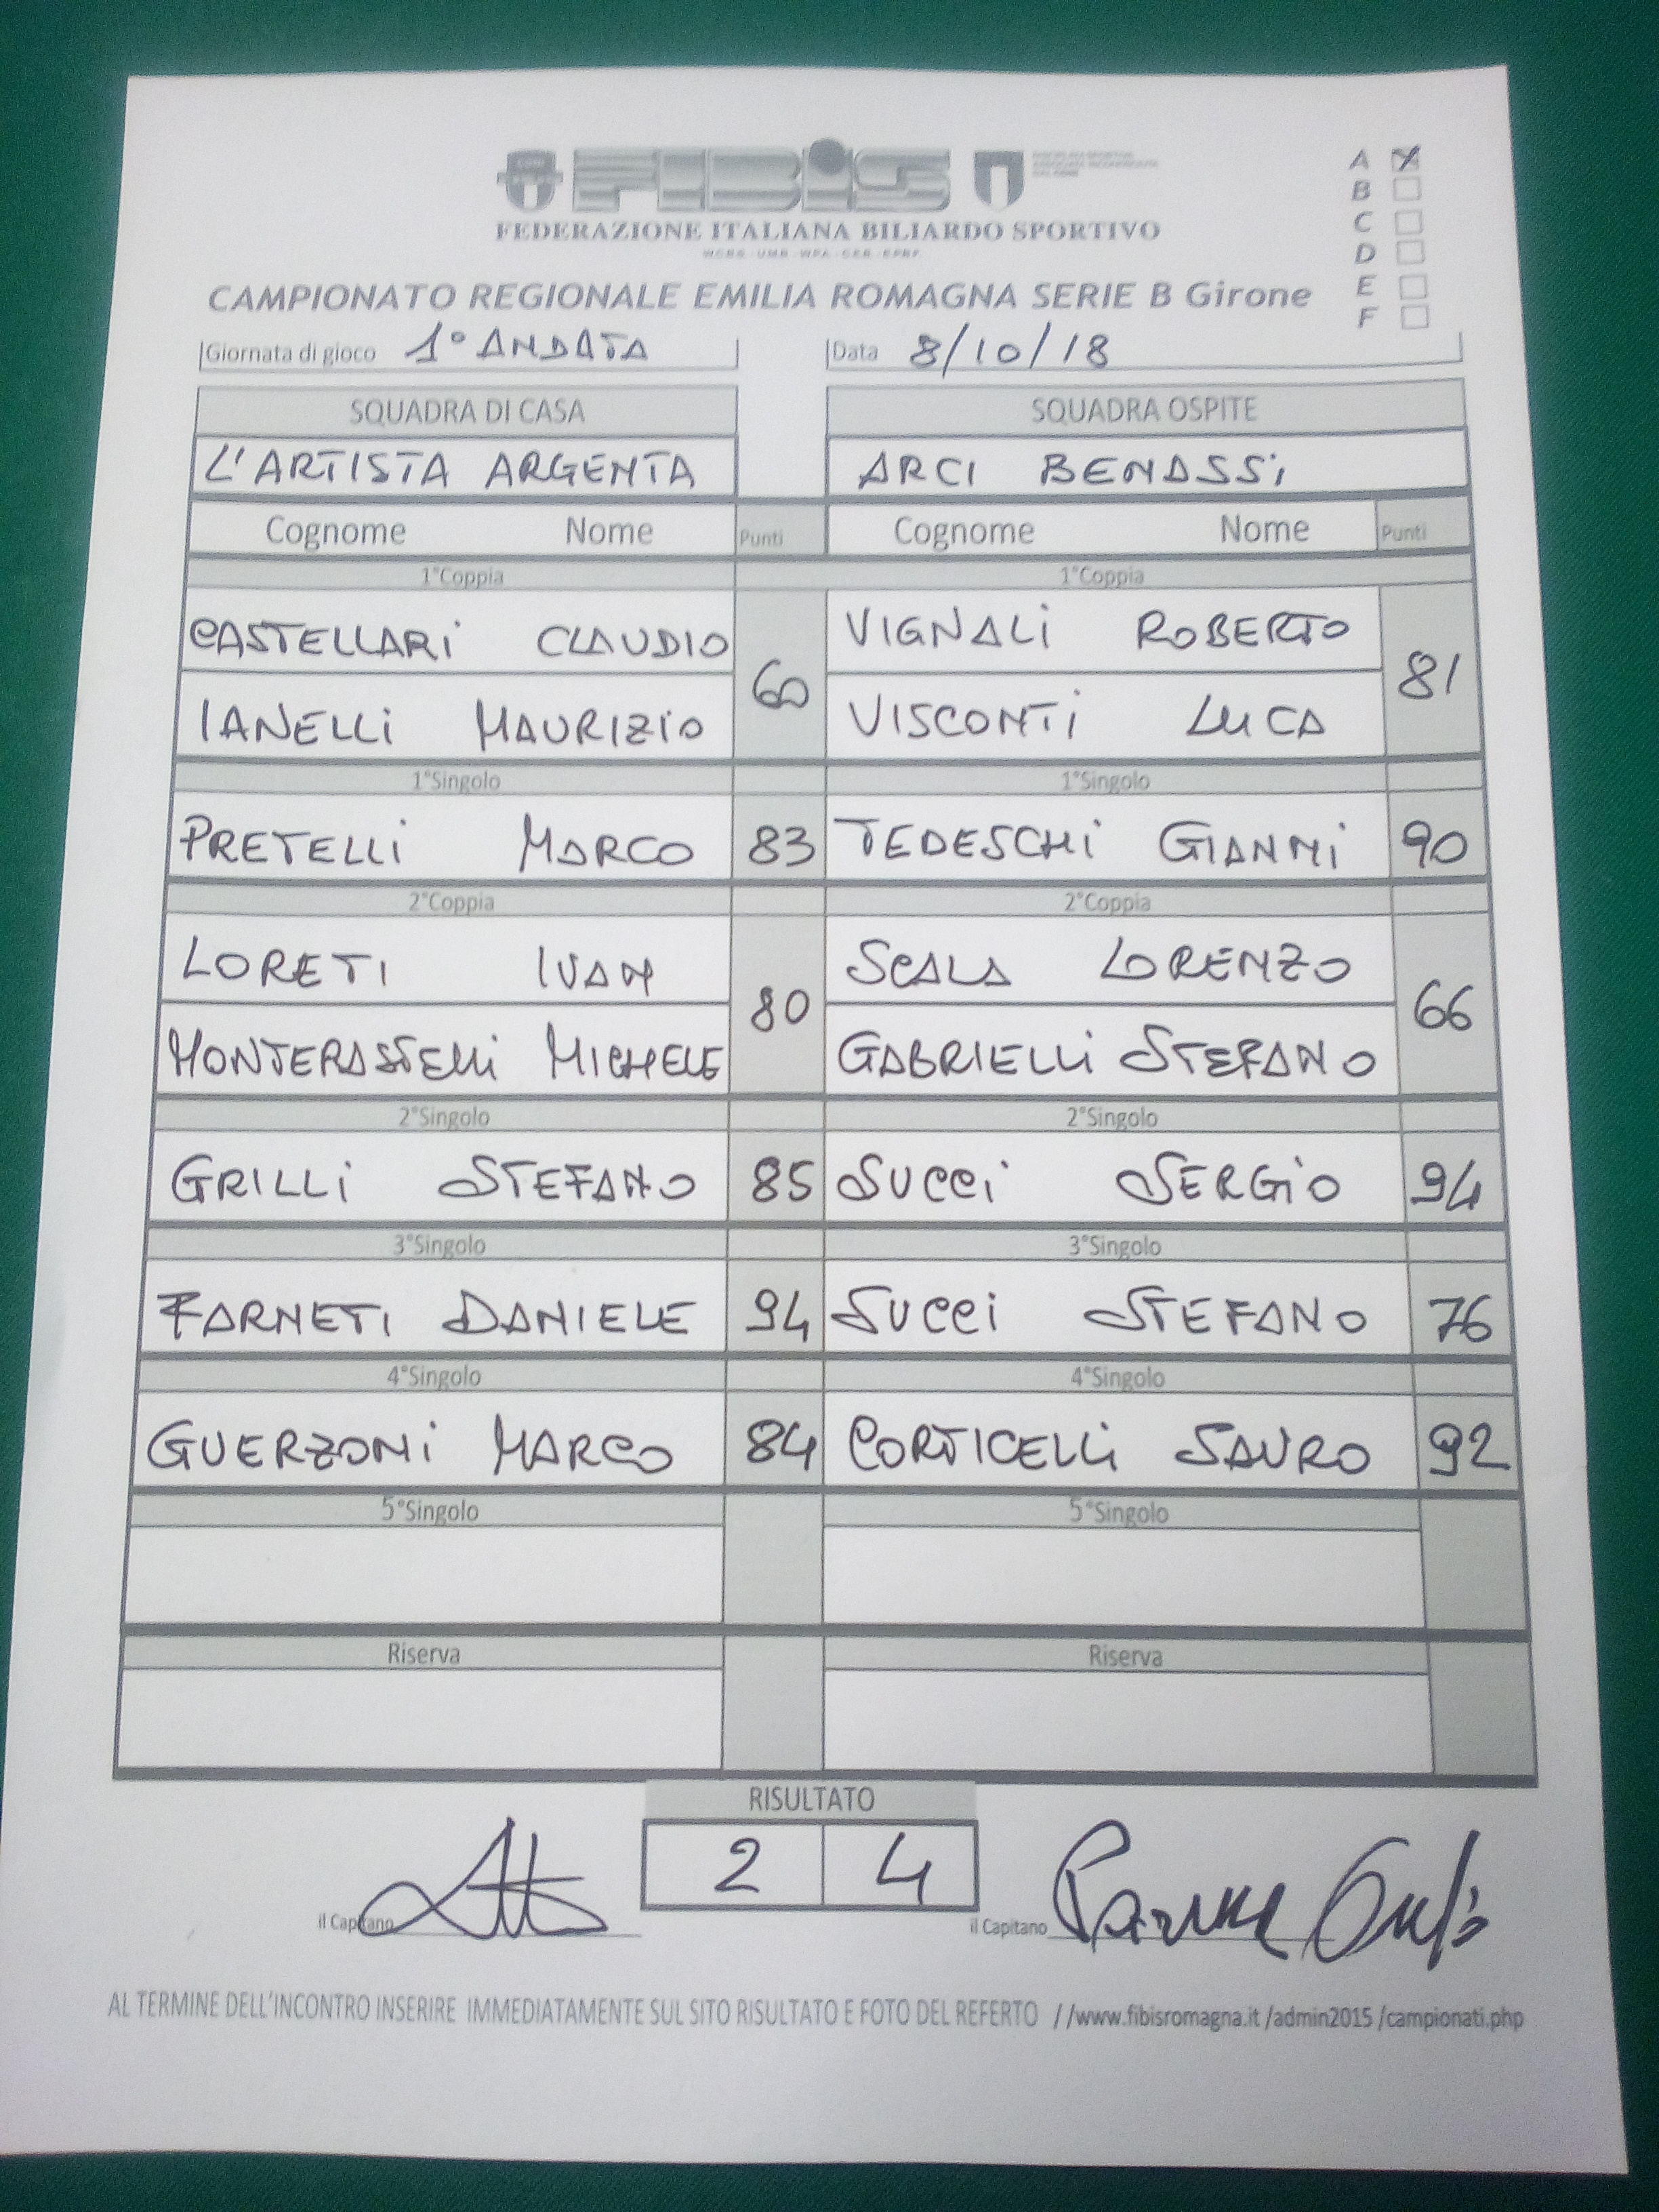 FIBIS
FEDERAZIONE ITALIANA BILIARDO SPORTIVO
A X
B
C
D
E
F
CAMPIONATO REGIONALE EMILIA ROMAGNA SERIE B Girone
Giornata di gioco 1° ANDATA Data 8/10/18
SQUADRA DI CASA SQUADRA OSPITE
L'ARTISTA ARGENTA ARCI BENASSi
Cognome Nome Punti Cognome Nome Punti
1°Coppia 1°Coppia
CASTELLARi CLAUDIO 60 VIGNALi ROBERTO 81
IANELLi MAURIZIO VISCONTi LUCA
1°Singolo 1°Singolo
PRETELLi MARCO 83 TEDESCHi GIANNi 90
2°Coppia 2°Coppia
LORETI IVAN 80 SCALA LORENZO 66
MONTERASTELLi MICHELE GABRIELLi STEFANO
2°Singolo 2°Singolo
GRILLi STEFANO 85 SUCCi SERGiO 94
3°Singolo 3°Singolo
FARNETI DANIELE 94 SUCCi STEFANO 76
4°Singolo 4°Singolo
GUERZONi MARCO 84 CORTICELLi SAURO 92
5°Singolo 5°Singolo
Riserva Riserva
RISULTATO
2 4
il Capitano il Capitano
AL TERMINE DELL'INCONTRO INSERIRE IMMEDIATAMENTE SUL SITO RISULTATO E FOTO DEL REFERTO //www.fibisromagna.it /admin2015 /campionati.php